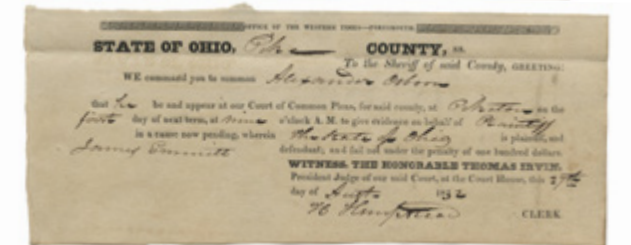 OFFICE OF THE WESTERN TIMES—PORTSMOUTH.
STATE OF OHIO, Pike COUNTY, ss.
To the Sheriff of said County, GREETING:
WE command you to summon Alexander Osborn
that he be and appear at our Court of Common Pleas, for said county, at Piketon on the
first day of next term, at nine o'clock A. M. to give evidence on behalf of Plaintiff
in a cause now pending, wherein The State of Ohio is plaintiff, and
James Emmitt defendant; and fail not under the penalty of one hundred dollars.
WITNESS, THE HONORABLE THOMAS IRVIN,
President Judge of our said Court, at the Court House, this 29th
day of 1832
CLERK